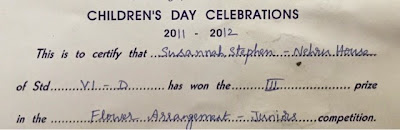 CHILDREN'S DAY CELEBRATIONS
2011 - 2012
This is to certify that Susannah Stephen - Nehru House
of Std VI - D has won the III prize
in the Flower Arrangement - Juniors competition.